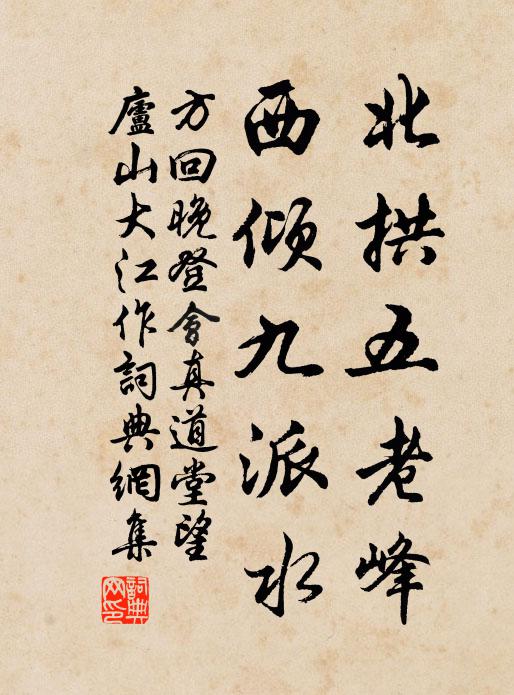 北拱五老峰
西倾九派水
方回晚登會真道堂望
廬山大江作詞典網集
詞典网印